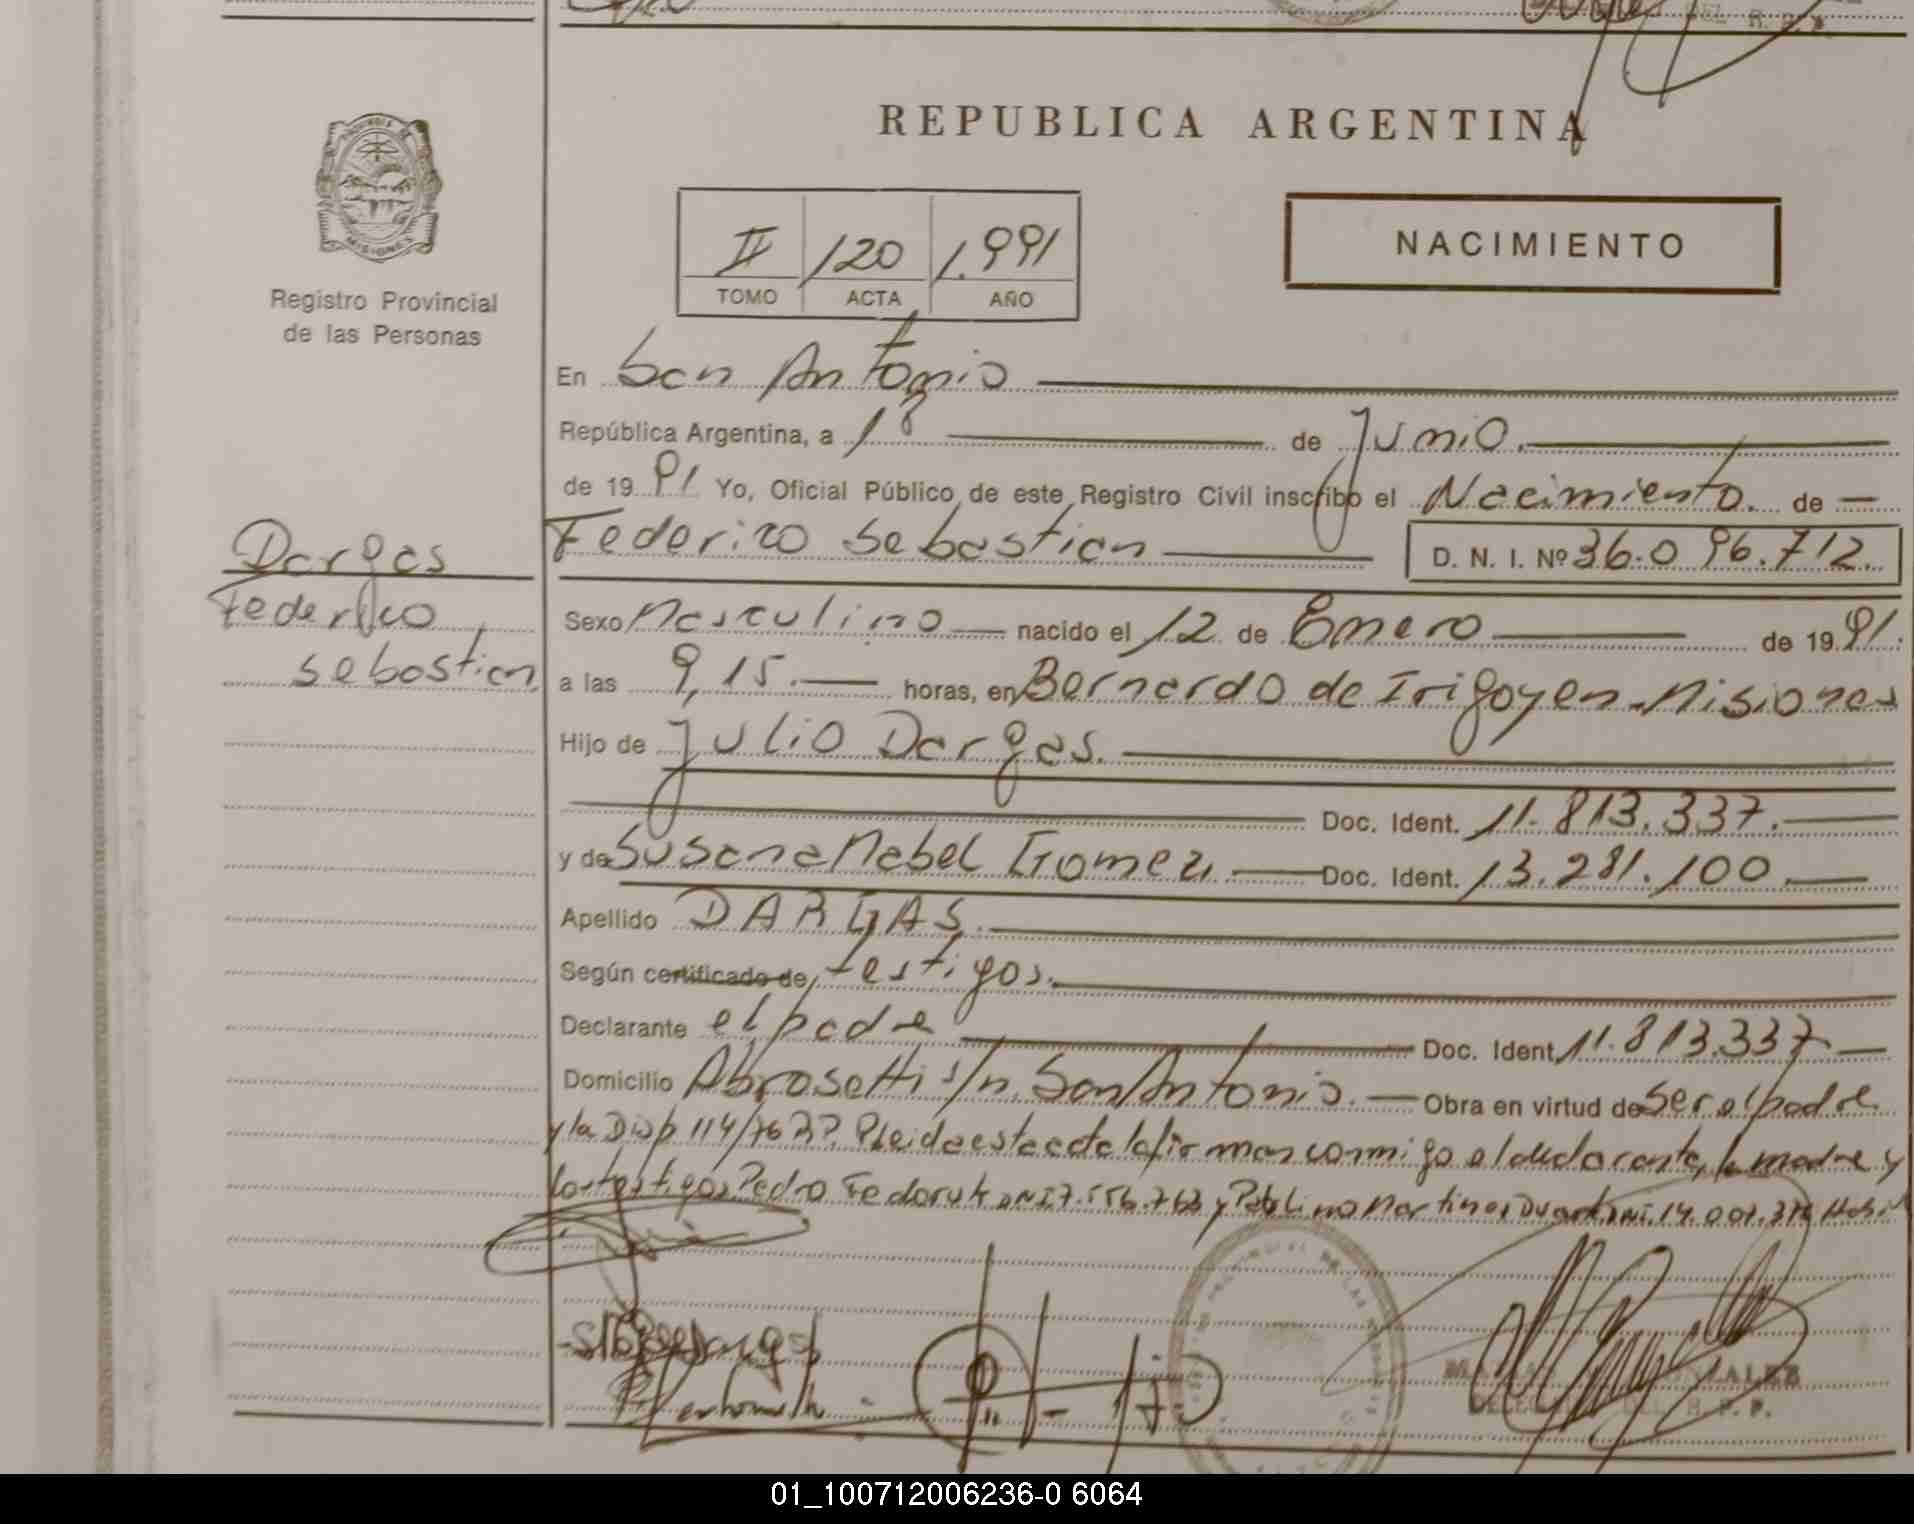 REPUBLICA ARGENTINA
PROVINCIA DE
MISIONES
Registro Provincial
de las Personas
II 120 1.991
TOMO ACTA AÑO
NACIMIENTO
En San Antonio
República Argentina, a 1º de Junio.
de 1991 Yo, Oficial Público de este Registro Civil inscribo el Nacimiento. de
Federico Sebastian D. N. I. Nº 36.096.712.
Dargas
Federico
Sebastian
Sexo Masculino nacido el 12 de Enero de 1991.
a las 9,15. horas, en Bernardo de Irigoyen-Misiones
Hijo de Julio Dargas.
Doc. Ident. 11.813.337.
y de Susana Mabel Gomez. Doc. Ident. 13.281.100.
Apellido DARGAS.
Según certificado de testigos.
Declarante el padre Doc. Ident. 11.813.337
Domicilio Abrosetti s/n. San Antonio. Obra en virtud de ser el padre
y la Disp 114/76 Leida este acta la firman conmigo el declarante, la madre y
los testigos Pedro Fedoruk DNI 7.556.763 y Martinez Duarte DNI. 14.001.
GONZALEZ
DEL R. P. P.
01_100712006236-0 6064